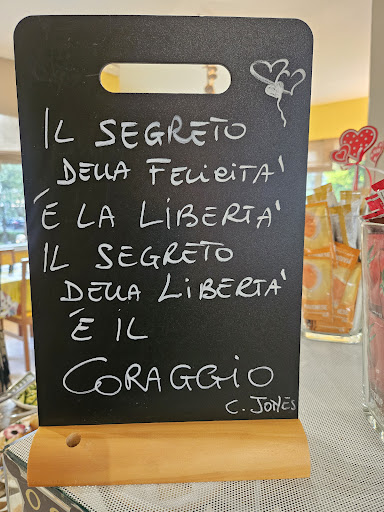 IL SEGRETO
DELLA FELICITA'
E' LA LIBERTA'
IL SEGRETO
DELLA LIBERTA'
E' IL
CORAGGIO
C. JONES